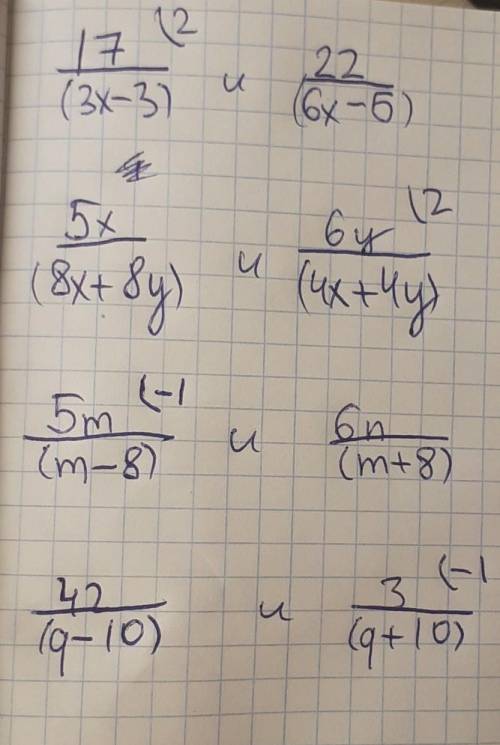 17 \2 / (3x-3) и 22 / (6x-6)
5x / (8x+8y) и 6y \2 / (4x+4y)
5m (-1 / (m-8) и 6n / (m+8)
42 / (q-10) и 3 (-1 / (q+10)